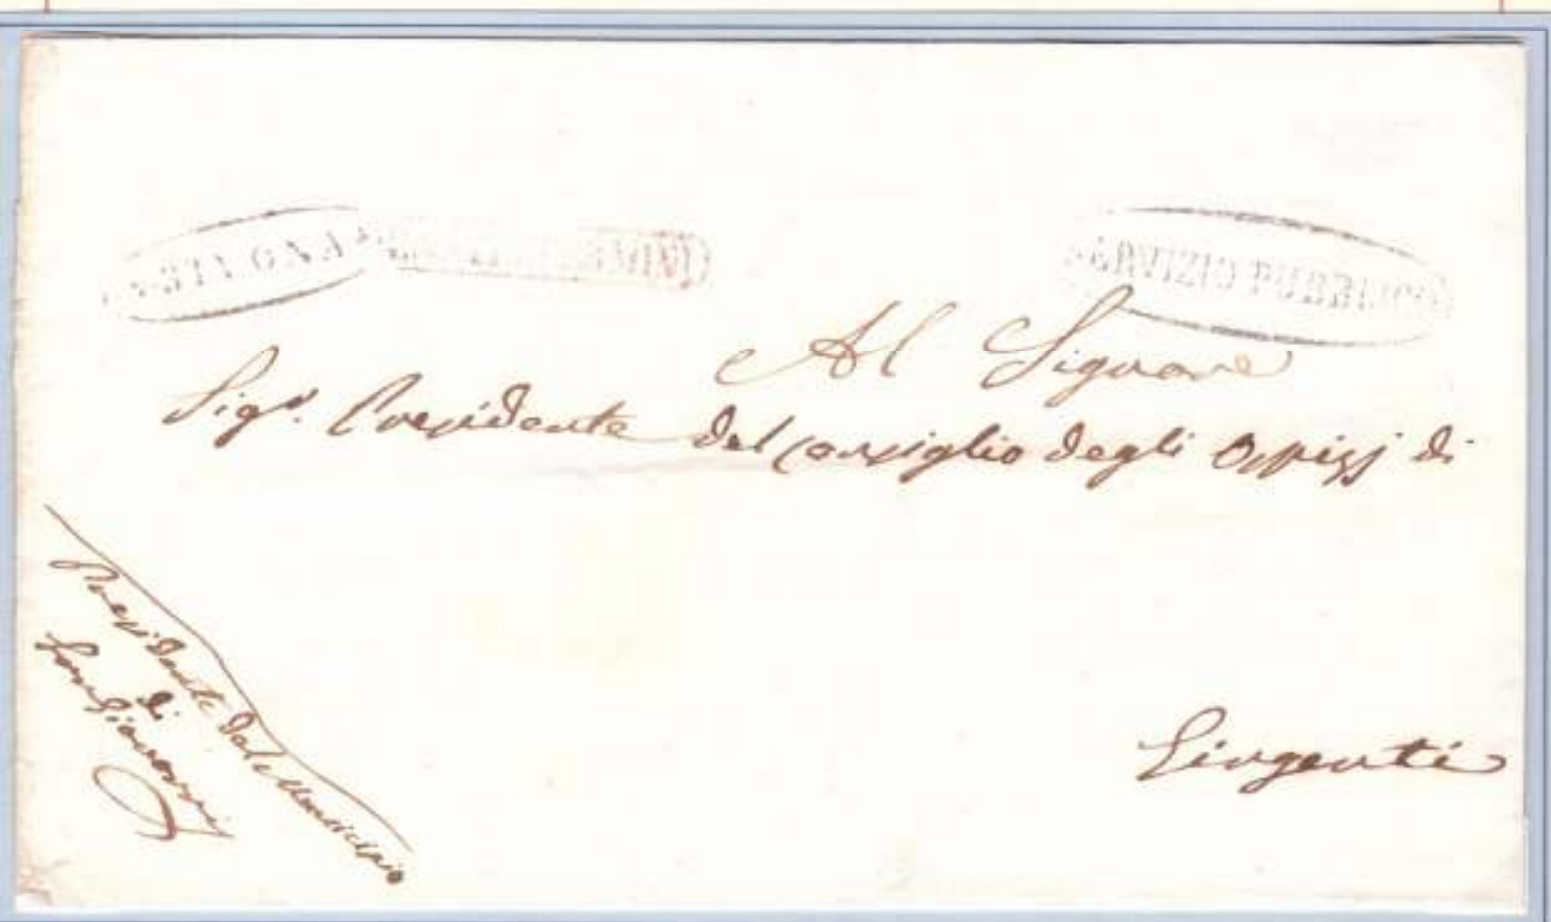 SERVIZIO PUBBLICO
Al Signore
Sigr. Presidente del Consiglio degli Ospizj di
Girgenti
Presidente del Municipio
di
San Giovanni